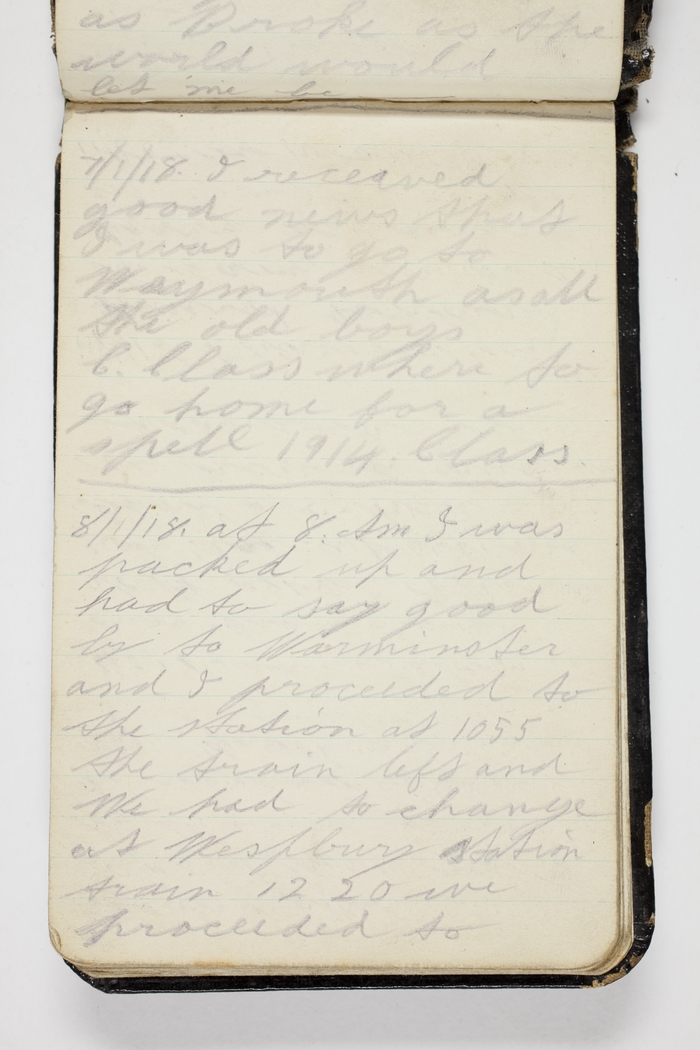 as Broke as the
world would
let me be
7/1/18. I receaved
good news that
I was to go to
Waymouth as all
the old boys
C. Class where to
go home for a
spell 1914. Class.
8/1/18. at 8. Am I was
packed up and
had to say good
by to Warminster
and I proceeded to
the station at 1055
the train left and
We had to change
at Wespbury station
train 12 20 we
proceeded to